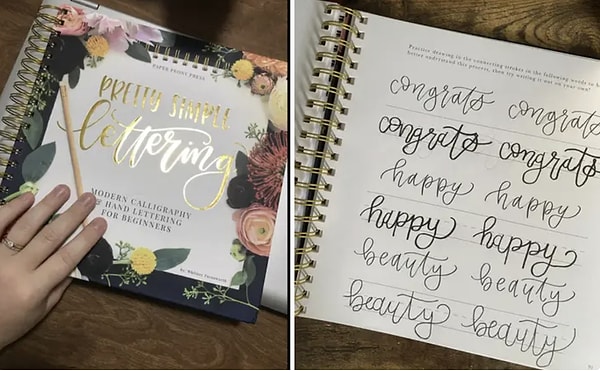 PAPER PEONY PRESS
PRETTY SIMPLE
lettering
MODERN CALLIGRAPHY
& HAND LETTERING
FOR BEGINNERS
By: Whitney Farnsworth
Practice drawing in the connecting strokes in the following words to
better understand this process, then try writing it out on your own!
congrats congrats
congrats congrats
happy happy
happy happy
beauty beauty
beauty beauty